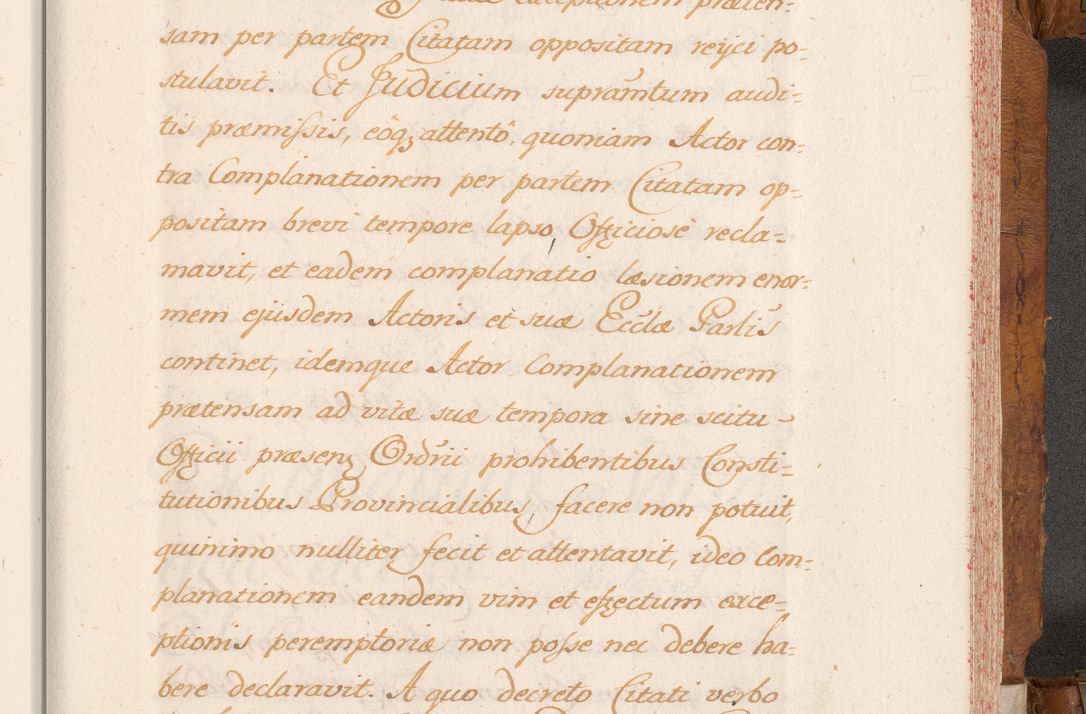 exceptionem præten-
sam per partem Citatam oppositam reijci po-
stulavit. Et Judicium supramtum audi-
tis præmissis, eoq; attento, quoniam Actor con-
tra Complanationem per partem Citatam op-
positam brevi tempore lapso, Officiose recla-
mavit, et eadem complanatio læsionem enor-
mem ejusdem Actoris et suæ Ecclæ Parlis
continet, idemque Actor Complanationem
prætensam ad vitæ suæ tempora sine scitu
Officii præsens Ordrii prohibentibus Consti-
tutionibus Provincialibus, facere non potuit,
quinimo nulliter fecit et attentavit, ideo Com-
planationem eandem vim et effectum exce-
ptionis peremptoriæ non posse nec debere ha-
bere declaravit. A quo decreto Citati verbo